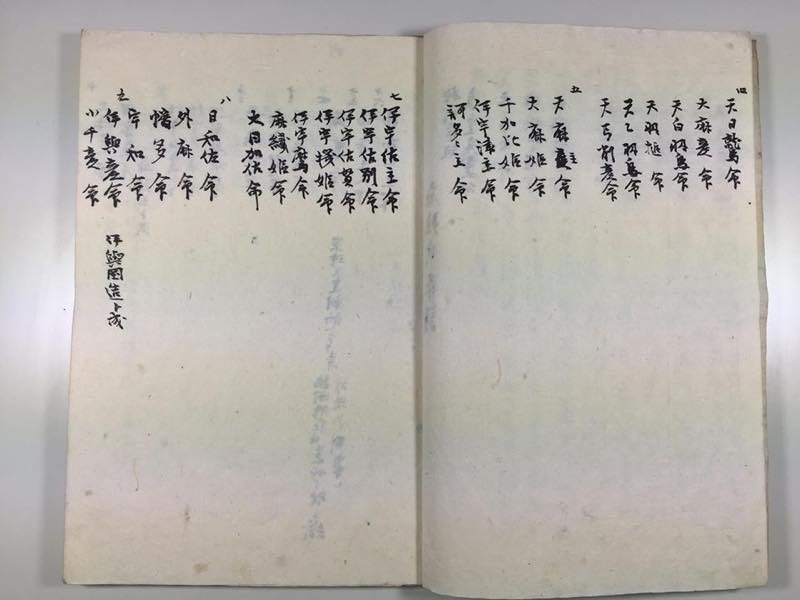 四
天日鷲命
大麻彦命
天白羽鳥命
天羽槌命
天乙羽鳥命
五
天麻主命
大麻姫命
千加比姫命
伊宇津主命
訶多々主命
七
伊宇佐主命
伊宇佐別命
伊宇佐賀命
伊宇桟姫命
伊宇麿命
麻績姫命
大日加佐命
八
日和佐命
外麻命
幡多命
宇和命
九
伊與彦命 伊與國造ト成
小千彦命